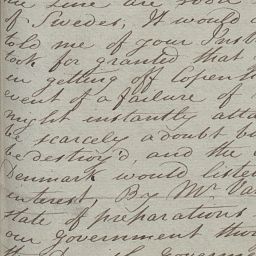 of Swedes, It would
told me of your
took for granted that
in getting off Copen
event of a failure of
might instantly atta
be scarcely a doubt b
be destroy'd, and the
Denmark would liste
interest, By Mr. Va
state of preparations
our Government tho